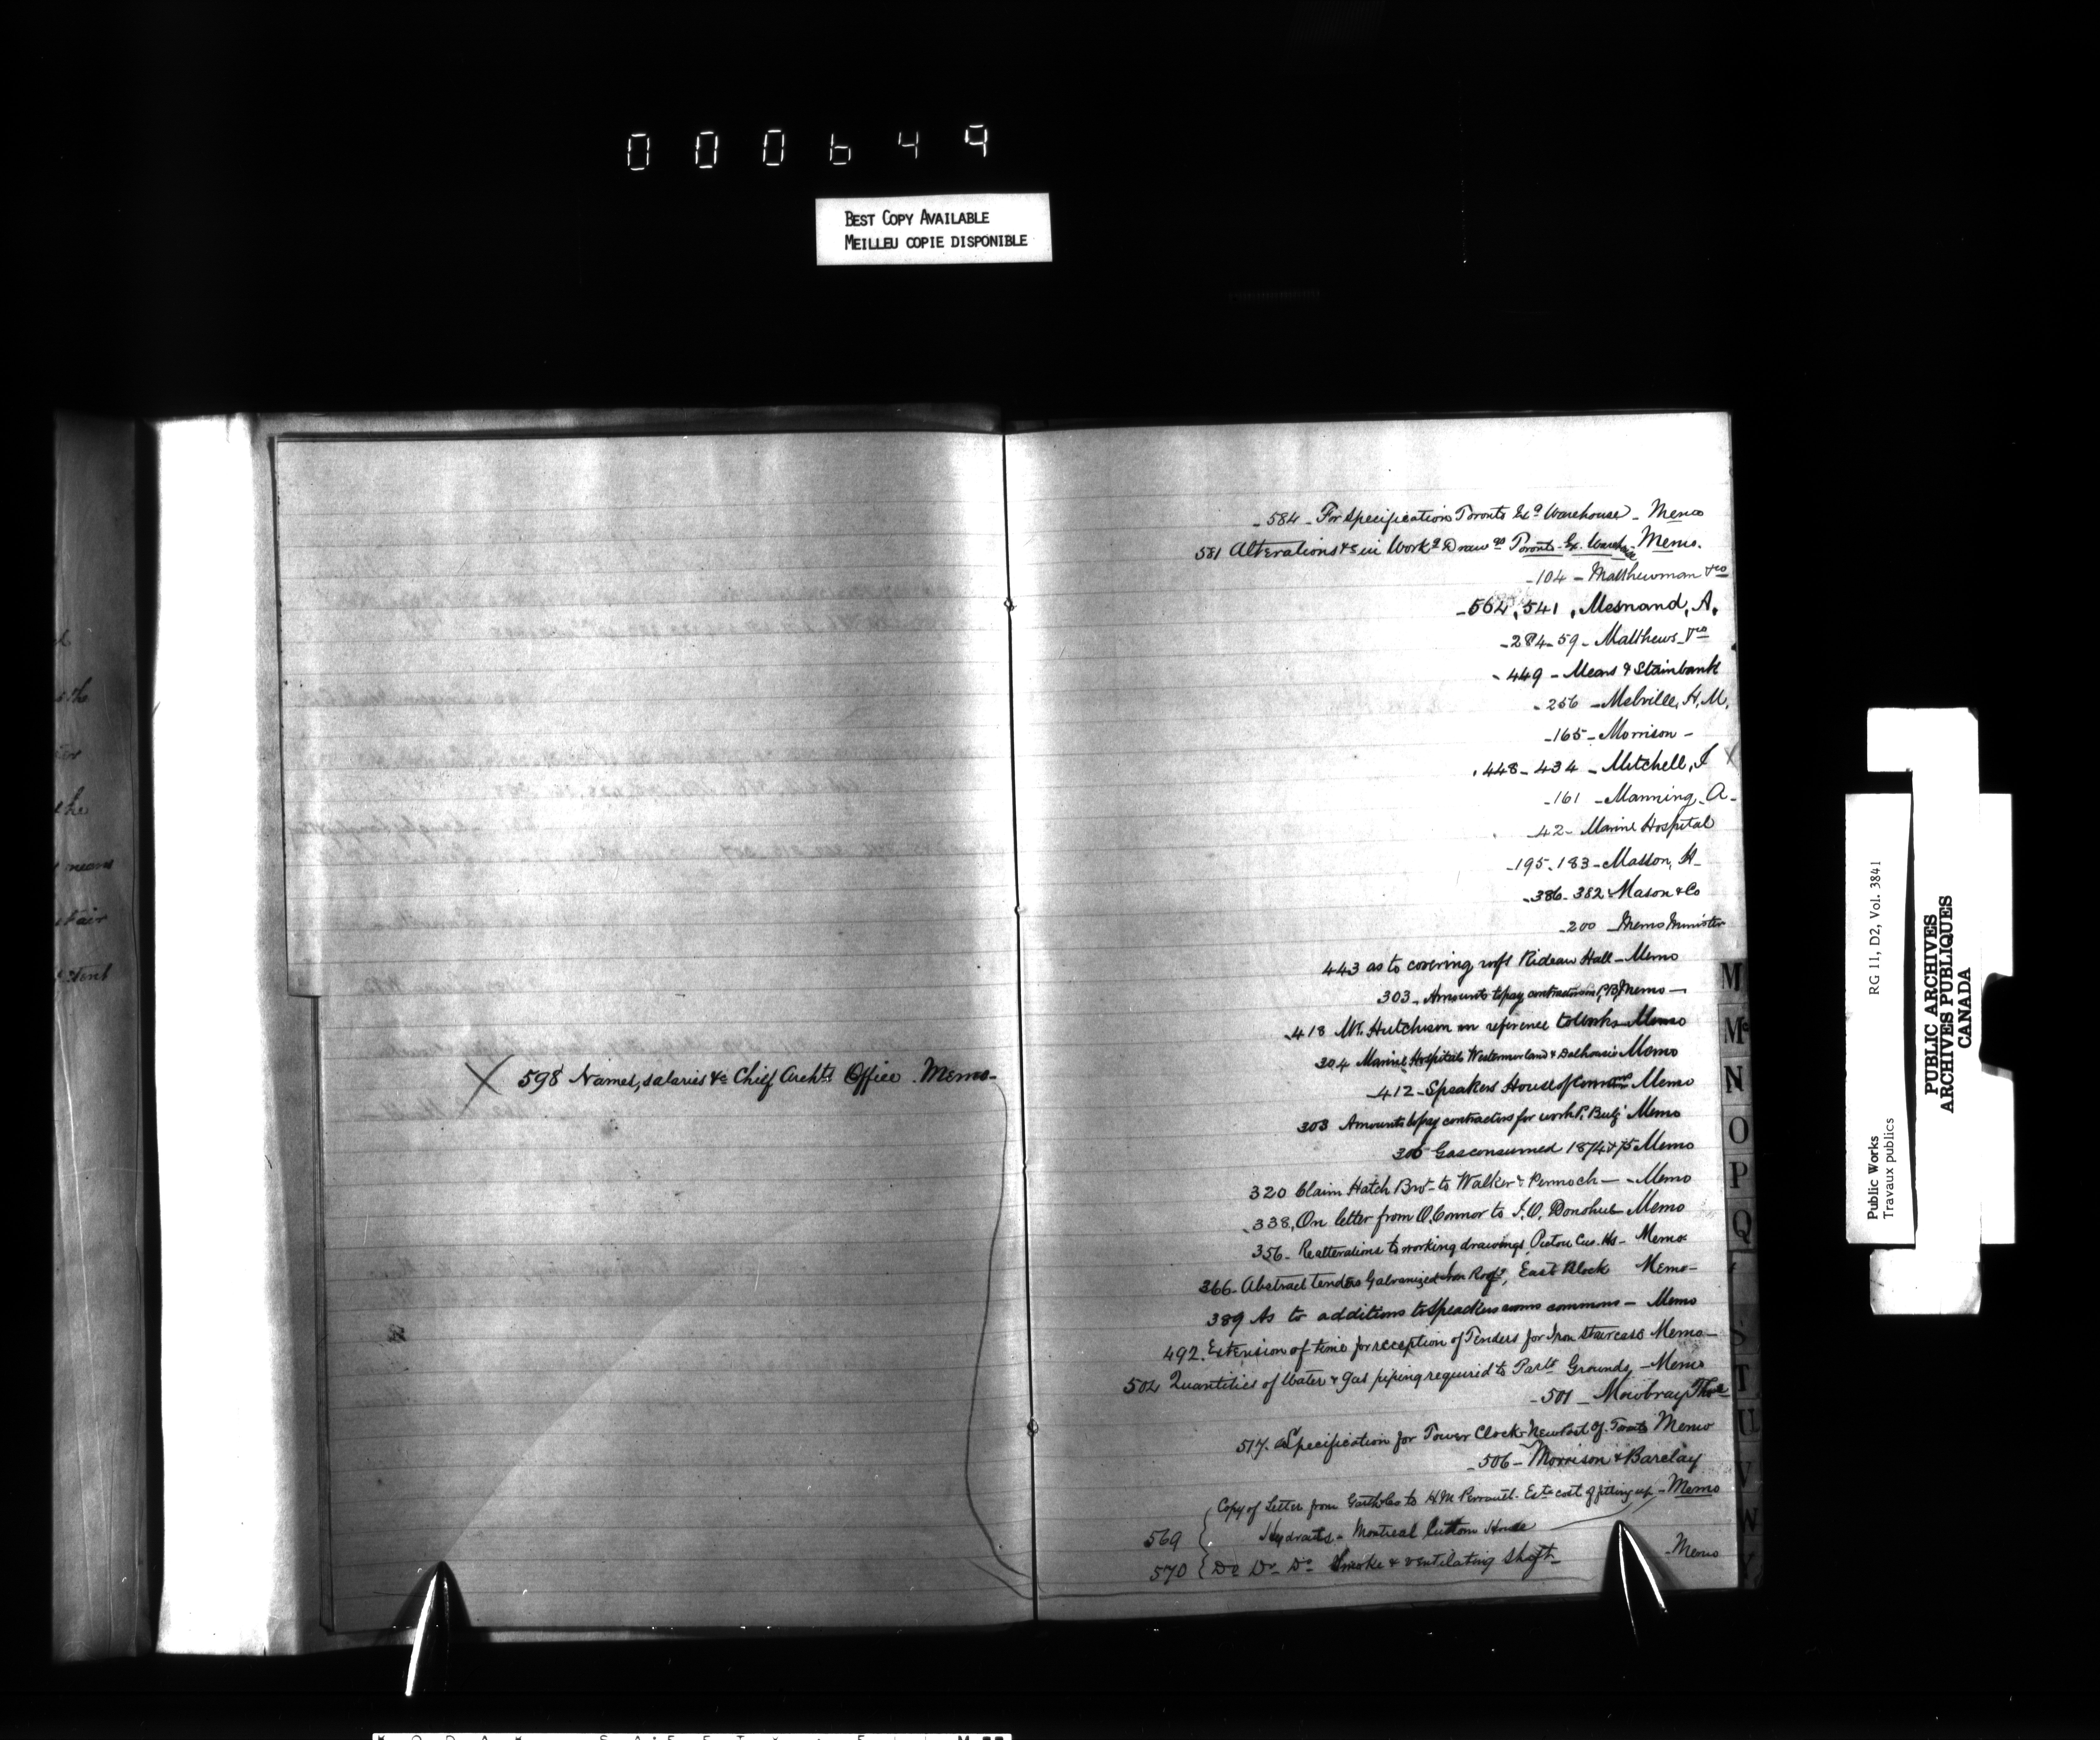 000649
BEST COPY AVAILABLE
MEILLEU COPIE DISPONIBLE
X 598 Names, salaries &c Chief Archts Office. Memo-
-584- For Specifications Toronto Ex. Warehouse - Memo
581 Alterations &c in Workg Drawgs Toronto Ex. Wareh - Memo.
-104- Matthewman &co
-564, 541, Mesnard, A.
-284-59- Matthews &co
-449- Mears & Stainbank
-256 -Melville, H. M.
-165- Morrison -
448-434- Mitchell, J X
-161 -Manning, A-
42- Marine Hospital
-195-183- Masson, H-
-386-382- Mason & Co
-200 Memo Minister
443 as to covering roofs Rideau Hall - Memo
303- Amounts to pay contractors P.B. Memo -
-418 Mr. Hutchison in reference to Works Memo
304 Marine Hospitals Westmorland & Dalhousie Memo
-412-Speakers House of Commons Memo
303 Amounts to pay contractors for work P. Bulg Memo
305 Gas consumed 1874 & 75 Memo
320 Claim Hatch Bro- to Walker & Pennoch - - Memo
-338, On letter from O'Connor to J. O. Donohue Memo
356- Re alterations to working drawings, Pictou Cus. Hs- Memo
366- Abstract tenders Galvanized Iron Roofs, East Block Memo-
389 As to additions to Speakers rooms commons - Memo
492. Extension of time for reception of Tenders for Iron Staircase Memo-
502 Quantities of Water & Gas piping required to Parlt Grounds, - Memo
-501- Mowbray Thos
517. Specification for Tower Clock New Post Of. Toronto Memo
-506- Morrison & Barclay
Copy of Letter from Garth & Co to H M Perrault. Este cost of fitting up - Memo
569 Hydrants - Montreal Custom House
570 Do Do Do Smoke & ventilating Shaft - Memo
M
Mc
N
O
P
Q
S
T
U
V
W
Y
Public Works
Travaux publics
RG 11, D2, Vol. 3841
PUBLIC ARCHIVES
ARCHIVES PUBLIQUES
CANADA